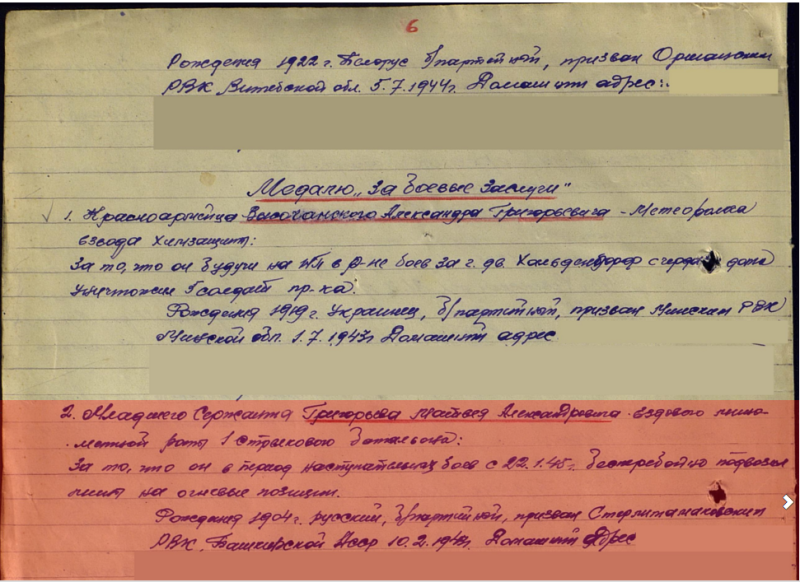 6
Рождения 1922 г. Белорус б/партийный, призван Оршанским
РВК Витебской обл. 5.7.1944г. Домашний адрес:
Медалью „За боевые заслуги"
1. Красноармейца Высочанского Александра Григорьевича - Метеоролога
взвода Химзащит:
За то, что он будучи на НП в р-не боев за г. дв. Хальдендорф с чердака дома
уничтожил солдат пр-ка.
Рождения 1919 г. Украинец, б/партийный, призван Минским РВК
Минской обл. 1.7.1943г Домашний адрес
2. Младшего Сержанта Григорьева Матвея Александровича ездового мино-
-метной роты 1 Стрелкового батальона:
За то, что он в период наступательных боев с 22.1.45г. бесперебойно подвозил
мины на огневые позиции.
Рождения 1904 г. русский, б/партийный, призван Стерлитамакским
РВК, Башкирской АССР 10.2.194г. Домашний адрес